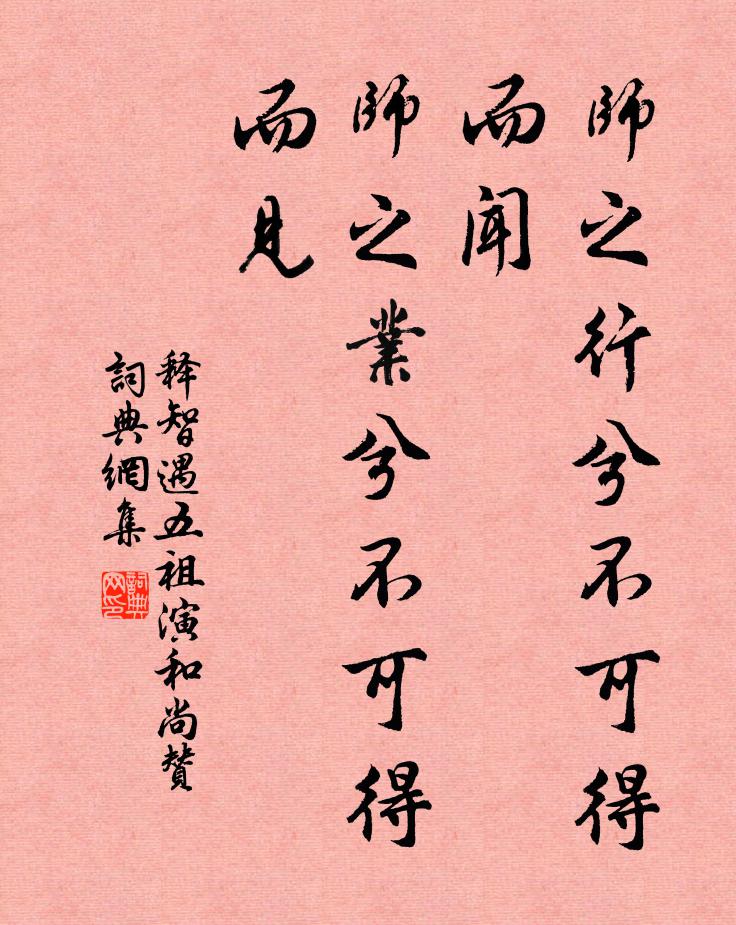 師之行兮不可得
而聞
師之業兮不可得
而見
释智遇五祖演和尚贊
詞典網集
詞典网印